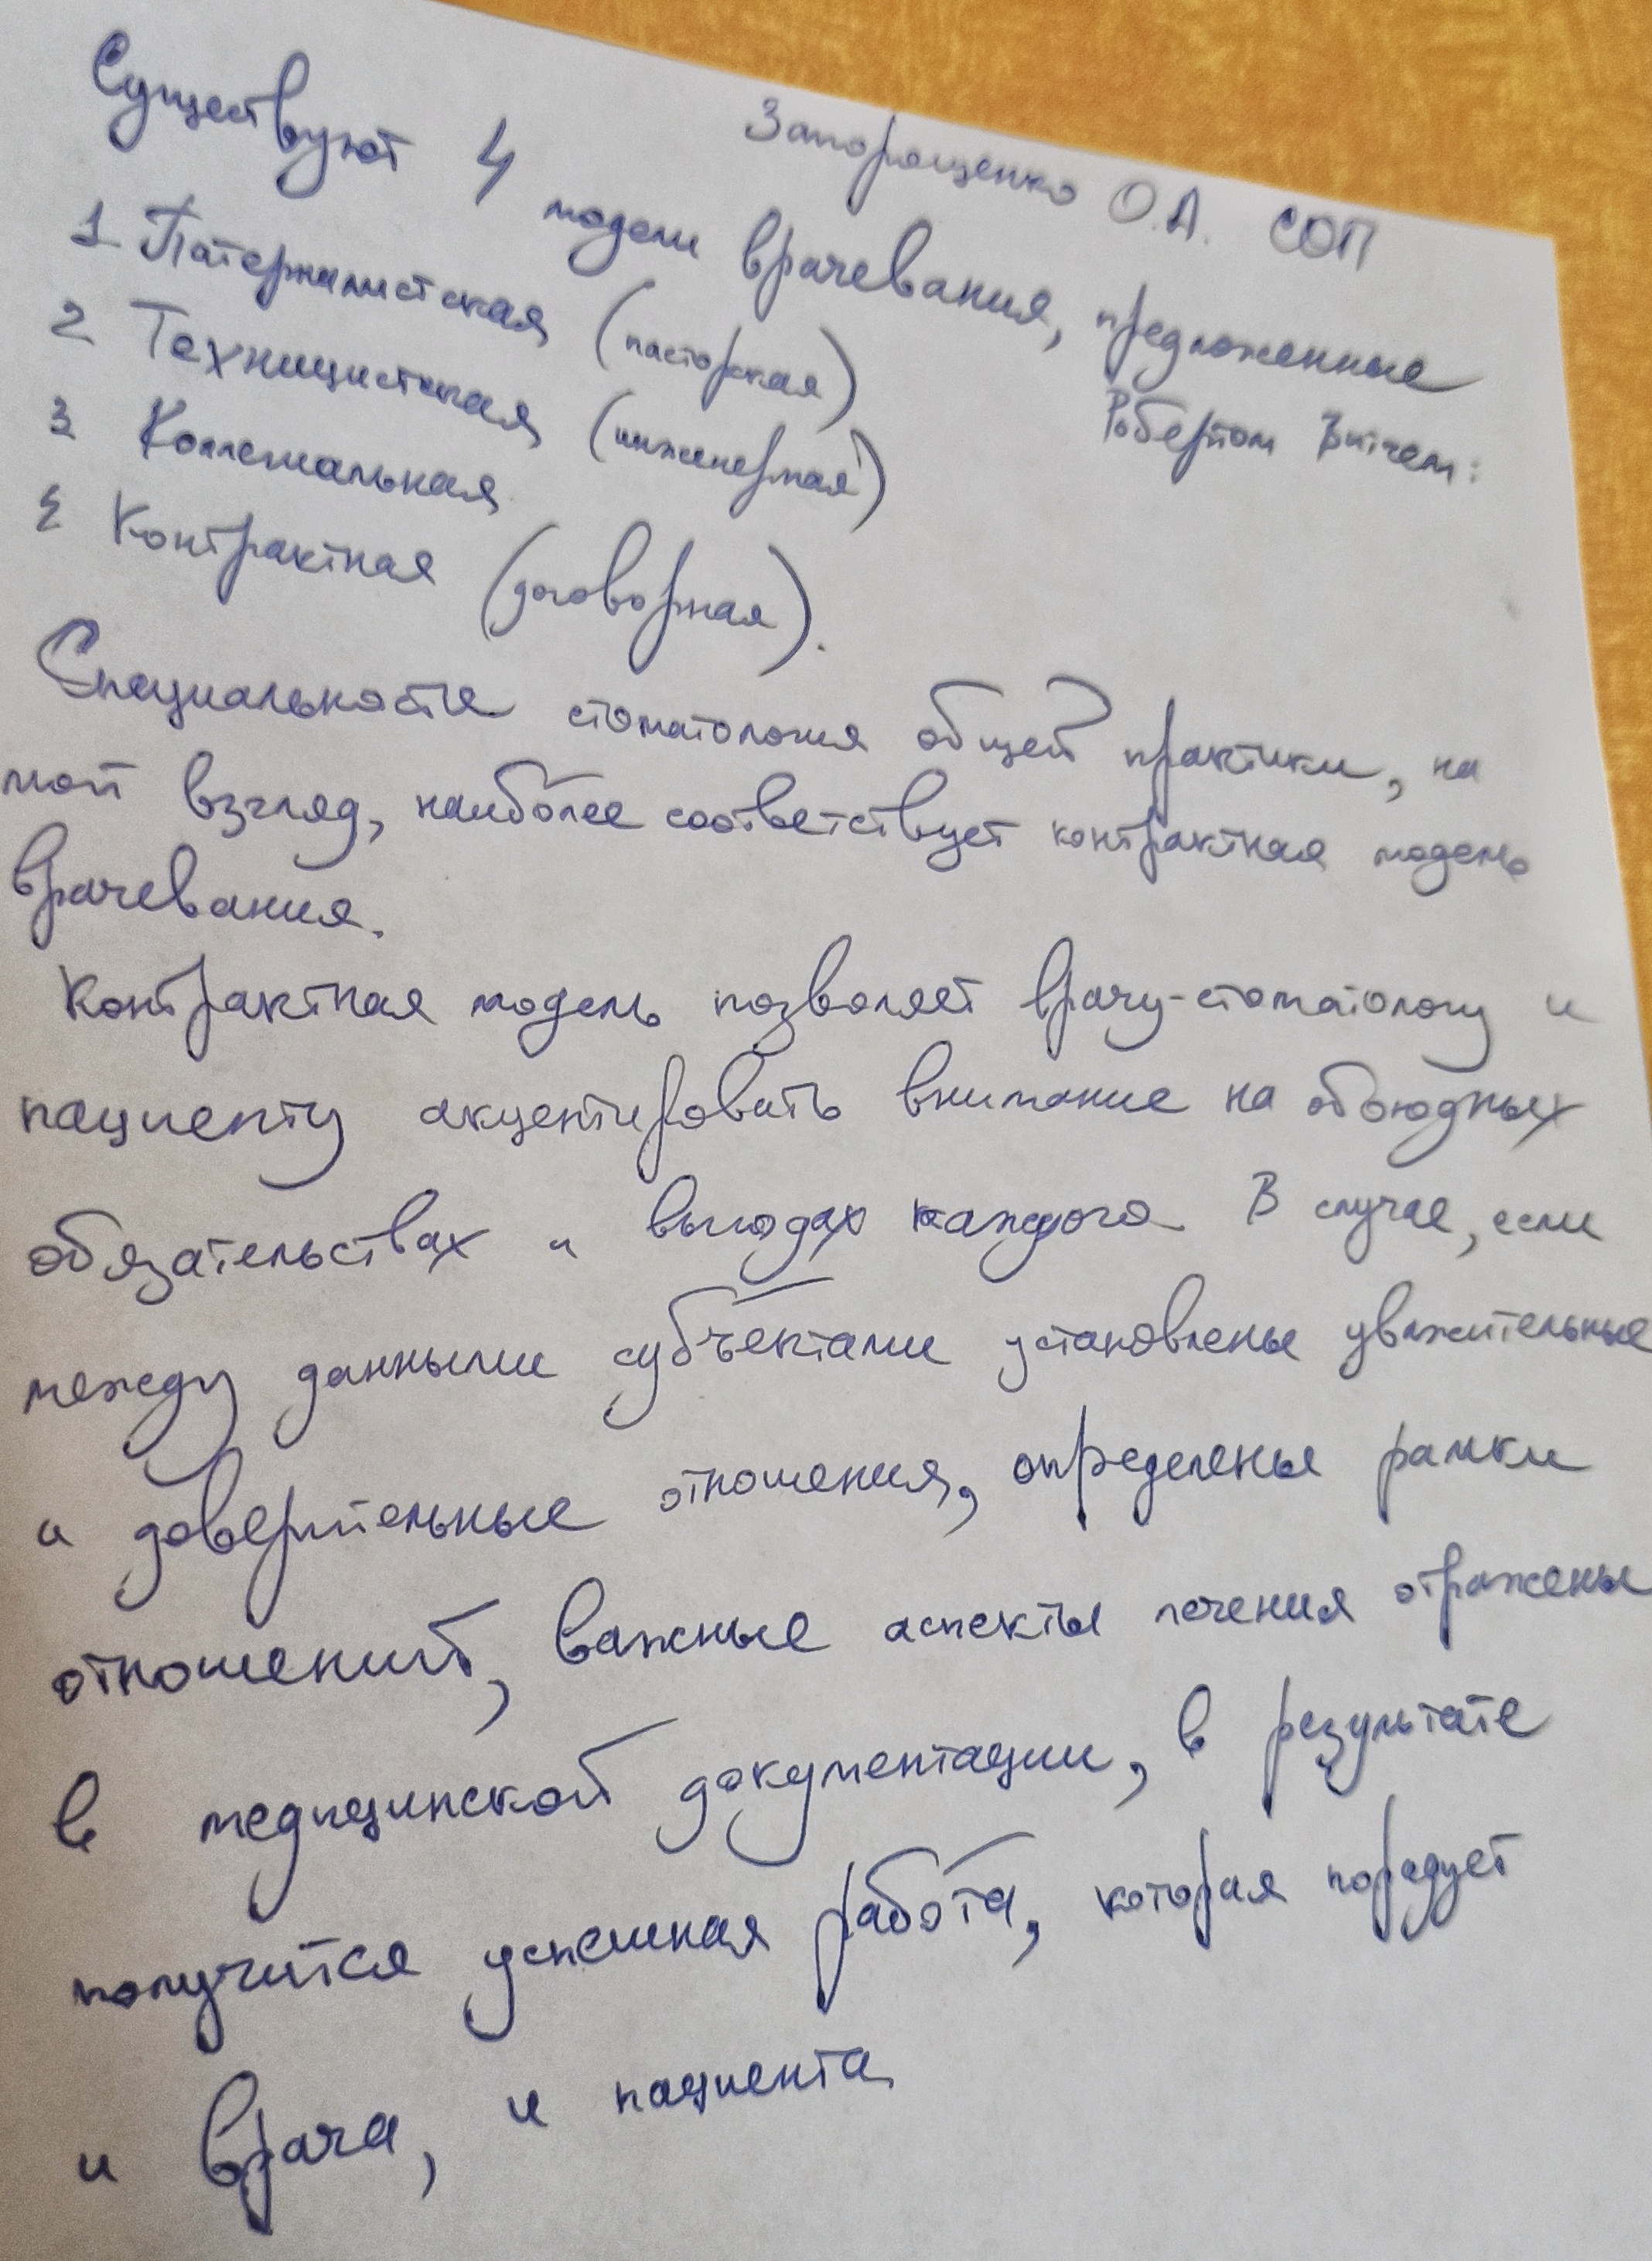 Запорощенко О.А. СОП
Существуют 4 модели врачевания, предложенные
Робертом Витчем:
1 Патерналистская (пасторская)
2 Техницистская (инженерная)
3 Коллегиальная
4 Контрактная (договорная).
Специальности стоматология общей практики, на
мой взгляд, наиболее соответствует контрактная модель
врачевания.
Контрактная модель позволяет врачу-стоматологу и
пациенту акцентировать внимание на обоюдных
обязательствах и выгодах каждого В случае, если
между данными субъектами установлены уважительные
и доверительные отношения, определены рамки
отношений, важные аспекты лечения отражены
в медицинской документации, в результате
получится успешная работа, которая порадует
и врача, и пациента